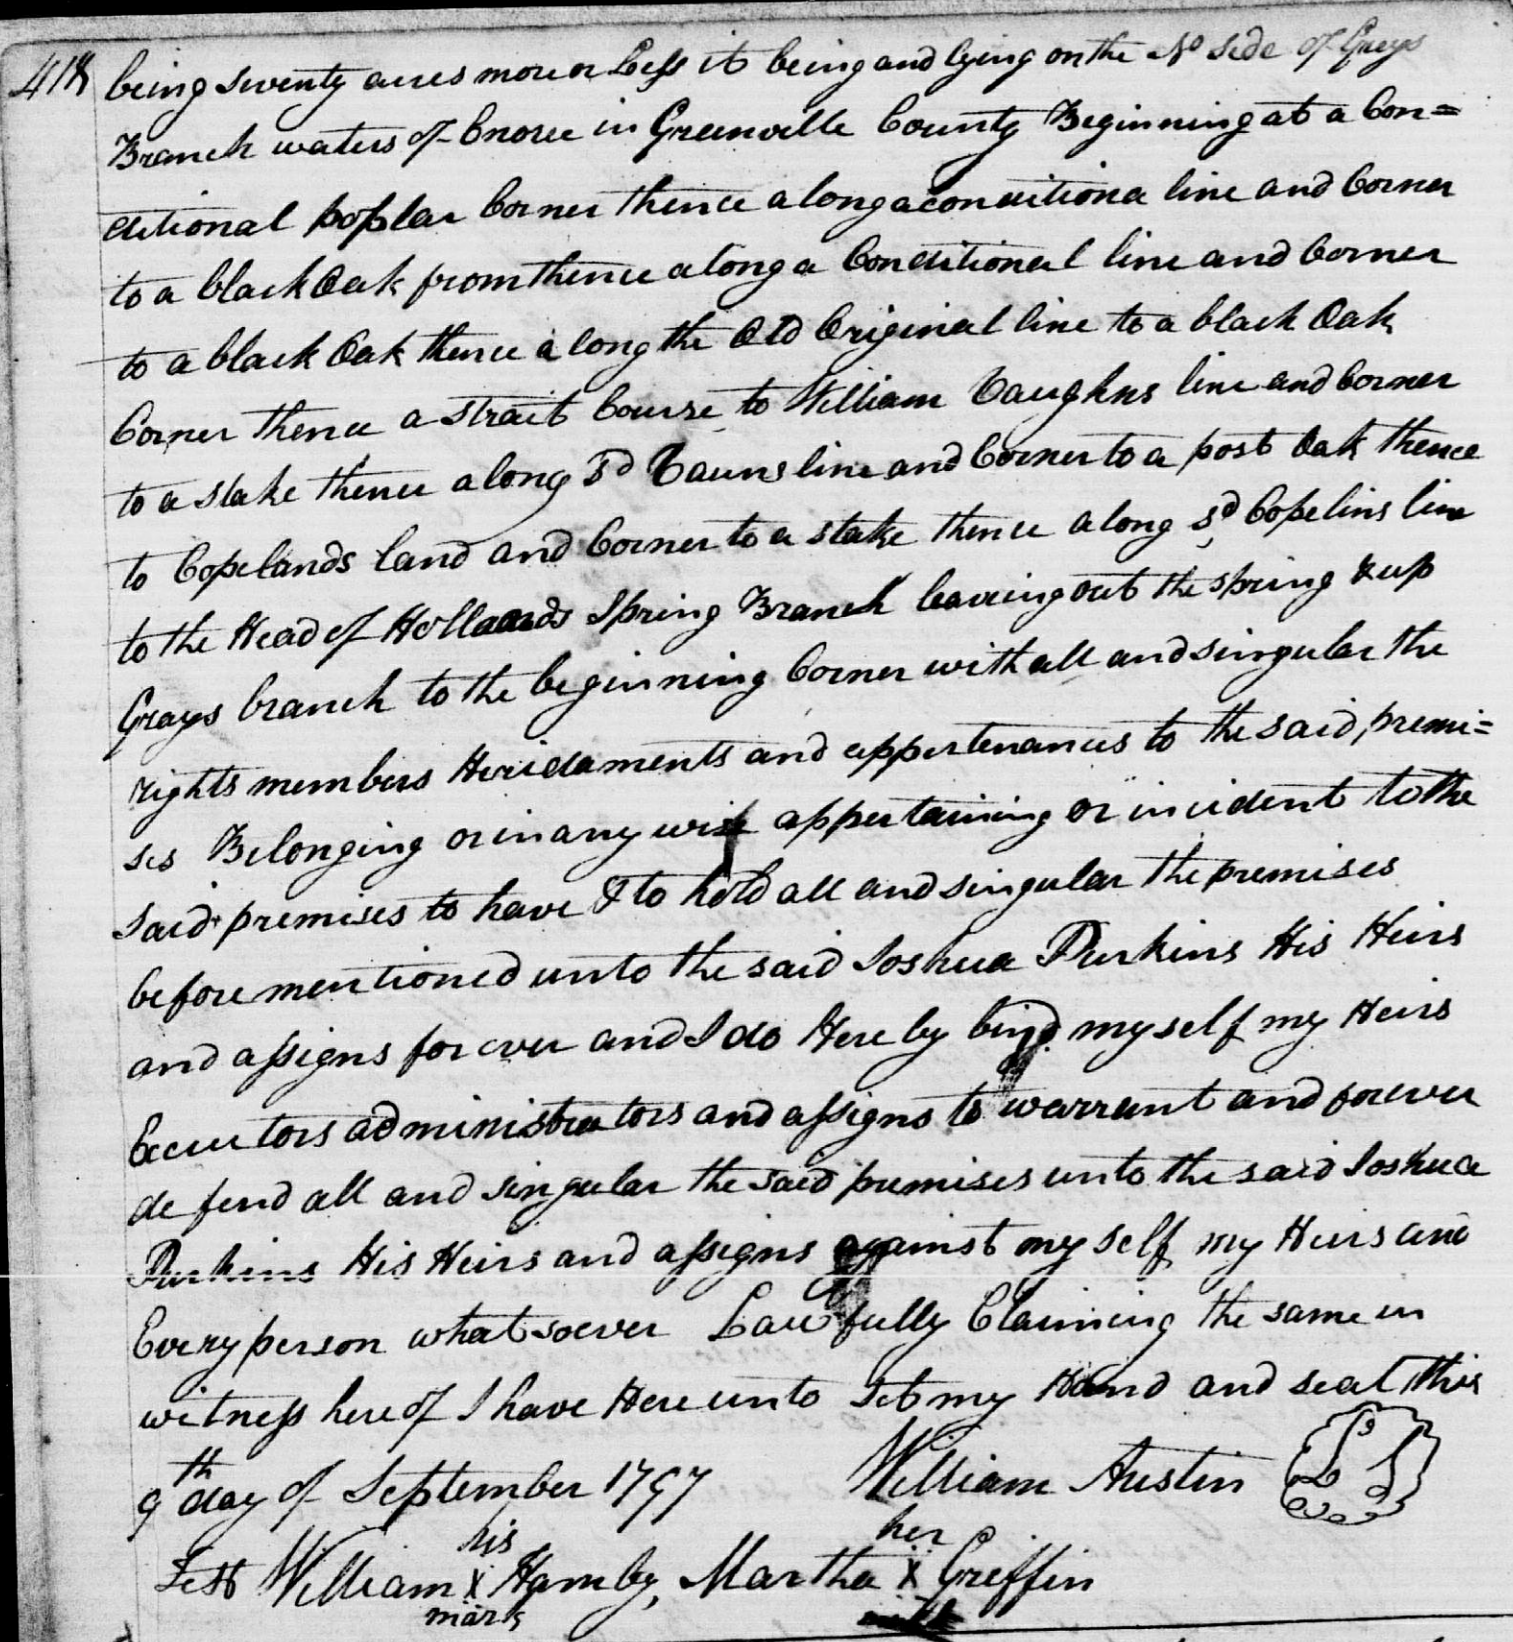 418 being seventy acres more or Less it being and lying on the No side of Grays
Branch waters of Enoree in Greenville County Beginning at a Con=
ditional poplar Corner thence along a conditiona line and Corner
to a black Oak from thence along a Conditional line and Corner
to a black Oak thence along the Old Original line to a black Oak
Corner thence a strait Course to William Vaughns line and Corner
to a stake thence along sd Vauns line and Corner to a post Oak thence
to Copelands land and Corner to a stake thence along sd Copelins line
to the Head of Hollands Spring Branch leaving out the spring & up
Grays branch to the beginning Corner with all and singular the
rights members Heridaments and appertenances to the said premi=
ses Belonging or in any wise appertaining or incident to the
said premises to have & to hold all and singular the premises
before mentioned unto the said Joshua Purkins His Heirs
and assigns for ever and I do Here by bind myself my Heirs
Executors administrators and assigns to warrant and forever
defend all and singular the said premises unto the said Joshua
Purkins His Heirs and assigns against my self my Heirs and
Every person what soever Lawfully Claiming the same in
witness here of I have Here unto Set my Hand and seal this
9th day of September 1797 William Austin LS
Test William his X mark Hamby, Martha her X Griffin